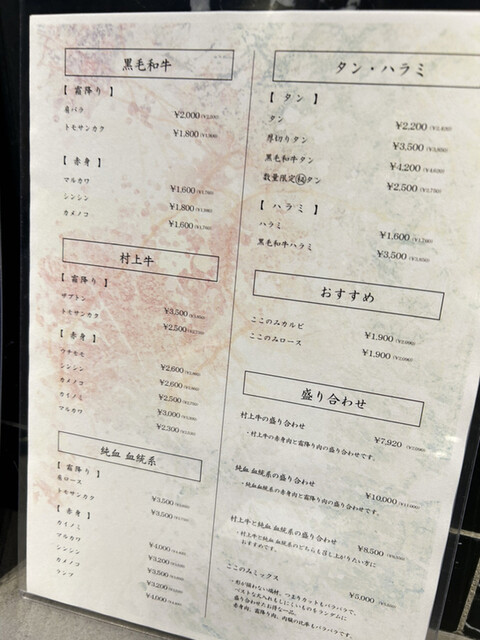 黒毛和牛
【 霜降り 】
肩バラ ¥2,000
トモサンカク ¥1,800
【 赤身 】
マルカワ ¥1,600
シンシン ¥1,800
カメノコ ¥1,600
村上牛
【 霜降り 】
ザブトン ¥3,500
トモサンカク ¥2,500
【 赤身 】
ウチモモ ¥2,600
シンシン ¥2,600
カメノコ ¥2,500
カイノミ ¥3,000
マルカワ ¥2,300
純血 血統系
【 霜降り 】
肩ロース ¥3,500
トモサンカク ¥3,500
【 赤身 】
カイノミ ¥4,000
マルカワ ¥3,200
シンシン ¥3,500
カメノコ ¥3,200
ランプ ¥4,000
タン・ハラミ
【 タン 】
タン ¥2,200
厚切りタン ¥3,500
黒毛和牛タン ¥4,200
数量限定㊙タン ¥2,500
【 ハラミ 】
ハラミ ¥1,600
黒毛和牛ハラミ ¥3,500
おすすめ
ここのみカルビ ¥1,900
ここのみロース ¥1,900
盛り合わせ
村上牛の盛り合わせ ¥7,920
・村上牛の赤身肉と霜降り肉の盛り合わせです。
純血 血統系の盛り合わせ ¥10,000
・純血血統系の赤身肉と霜降り肉の盛り合わせです。
村上牛と純血 血統系の盛り合わせ ¥8,500
・村上牛と純血 血統系のどちらも召し上がりたい方に
おすすめです。
ここのみミックス ¥5,000
・形が揃わない端材、つまりカットもバラバラで、
ベストな大入れもしにくいものをランダムに
盛り合わせたお得な一品。
赤身肉、霜降り肉、内臓の比率もバラバラです。